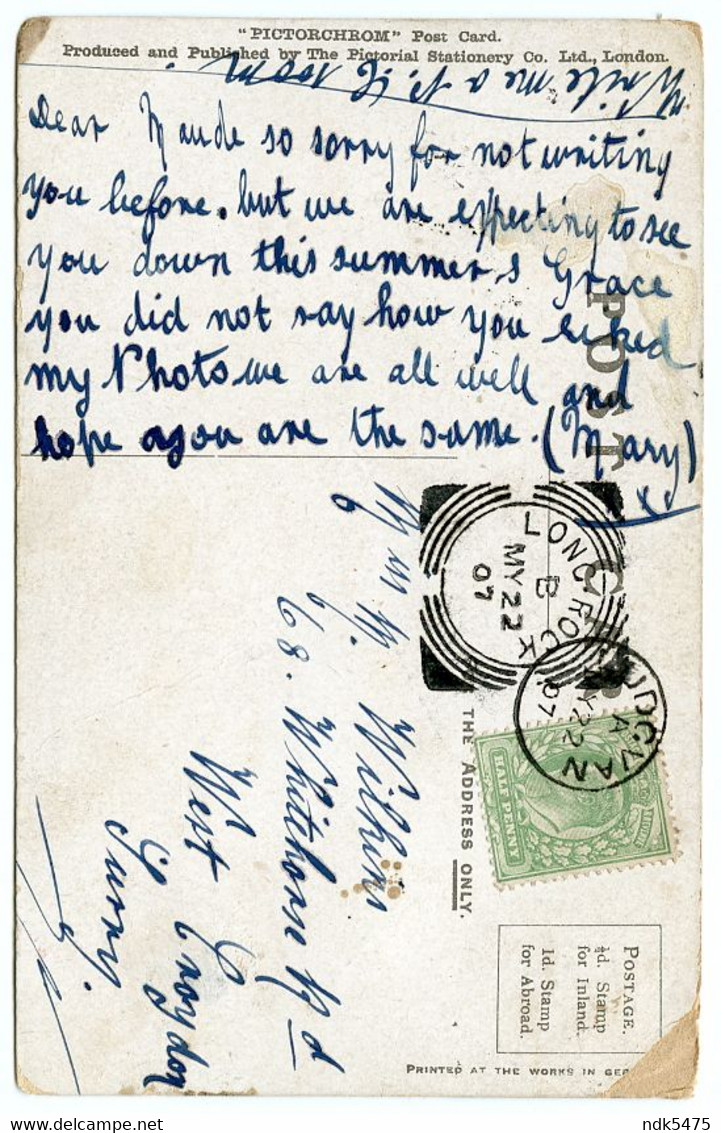 "PICTORCHROM" Post Card.
Produced and Published by The Pictorial Stationery Co. Ltd., London.
Write me a P. C soon
Dear Maude so sorry for not writing
you before. but we are expecting to see
you down this summer & Grace
you did not say how you liked
my Photo we are all well and
hope you are the same. (Mary)
x
POST CAR
LONG ROCK
B
MY 22
07
LUDGVAN
A
MY 22
07
HALF PENNY
M. Wilkins
68. Whitehorse Rd
West Croydon
Surry.
THE ADDRESS ONLY.
POSTAGE.
½d. Stamp
for Inland.
1d. Stamp
for Abroad.
PRINTED AT THE WORKS IN GER
ndk5475